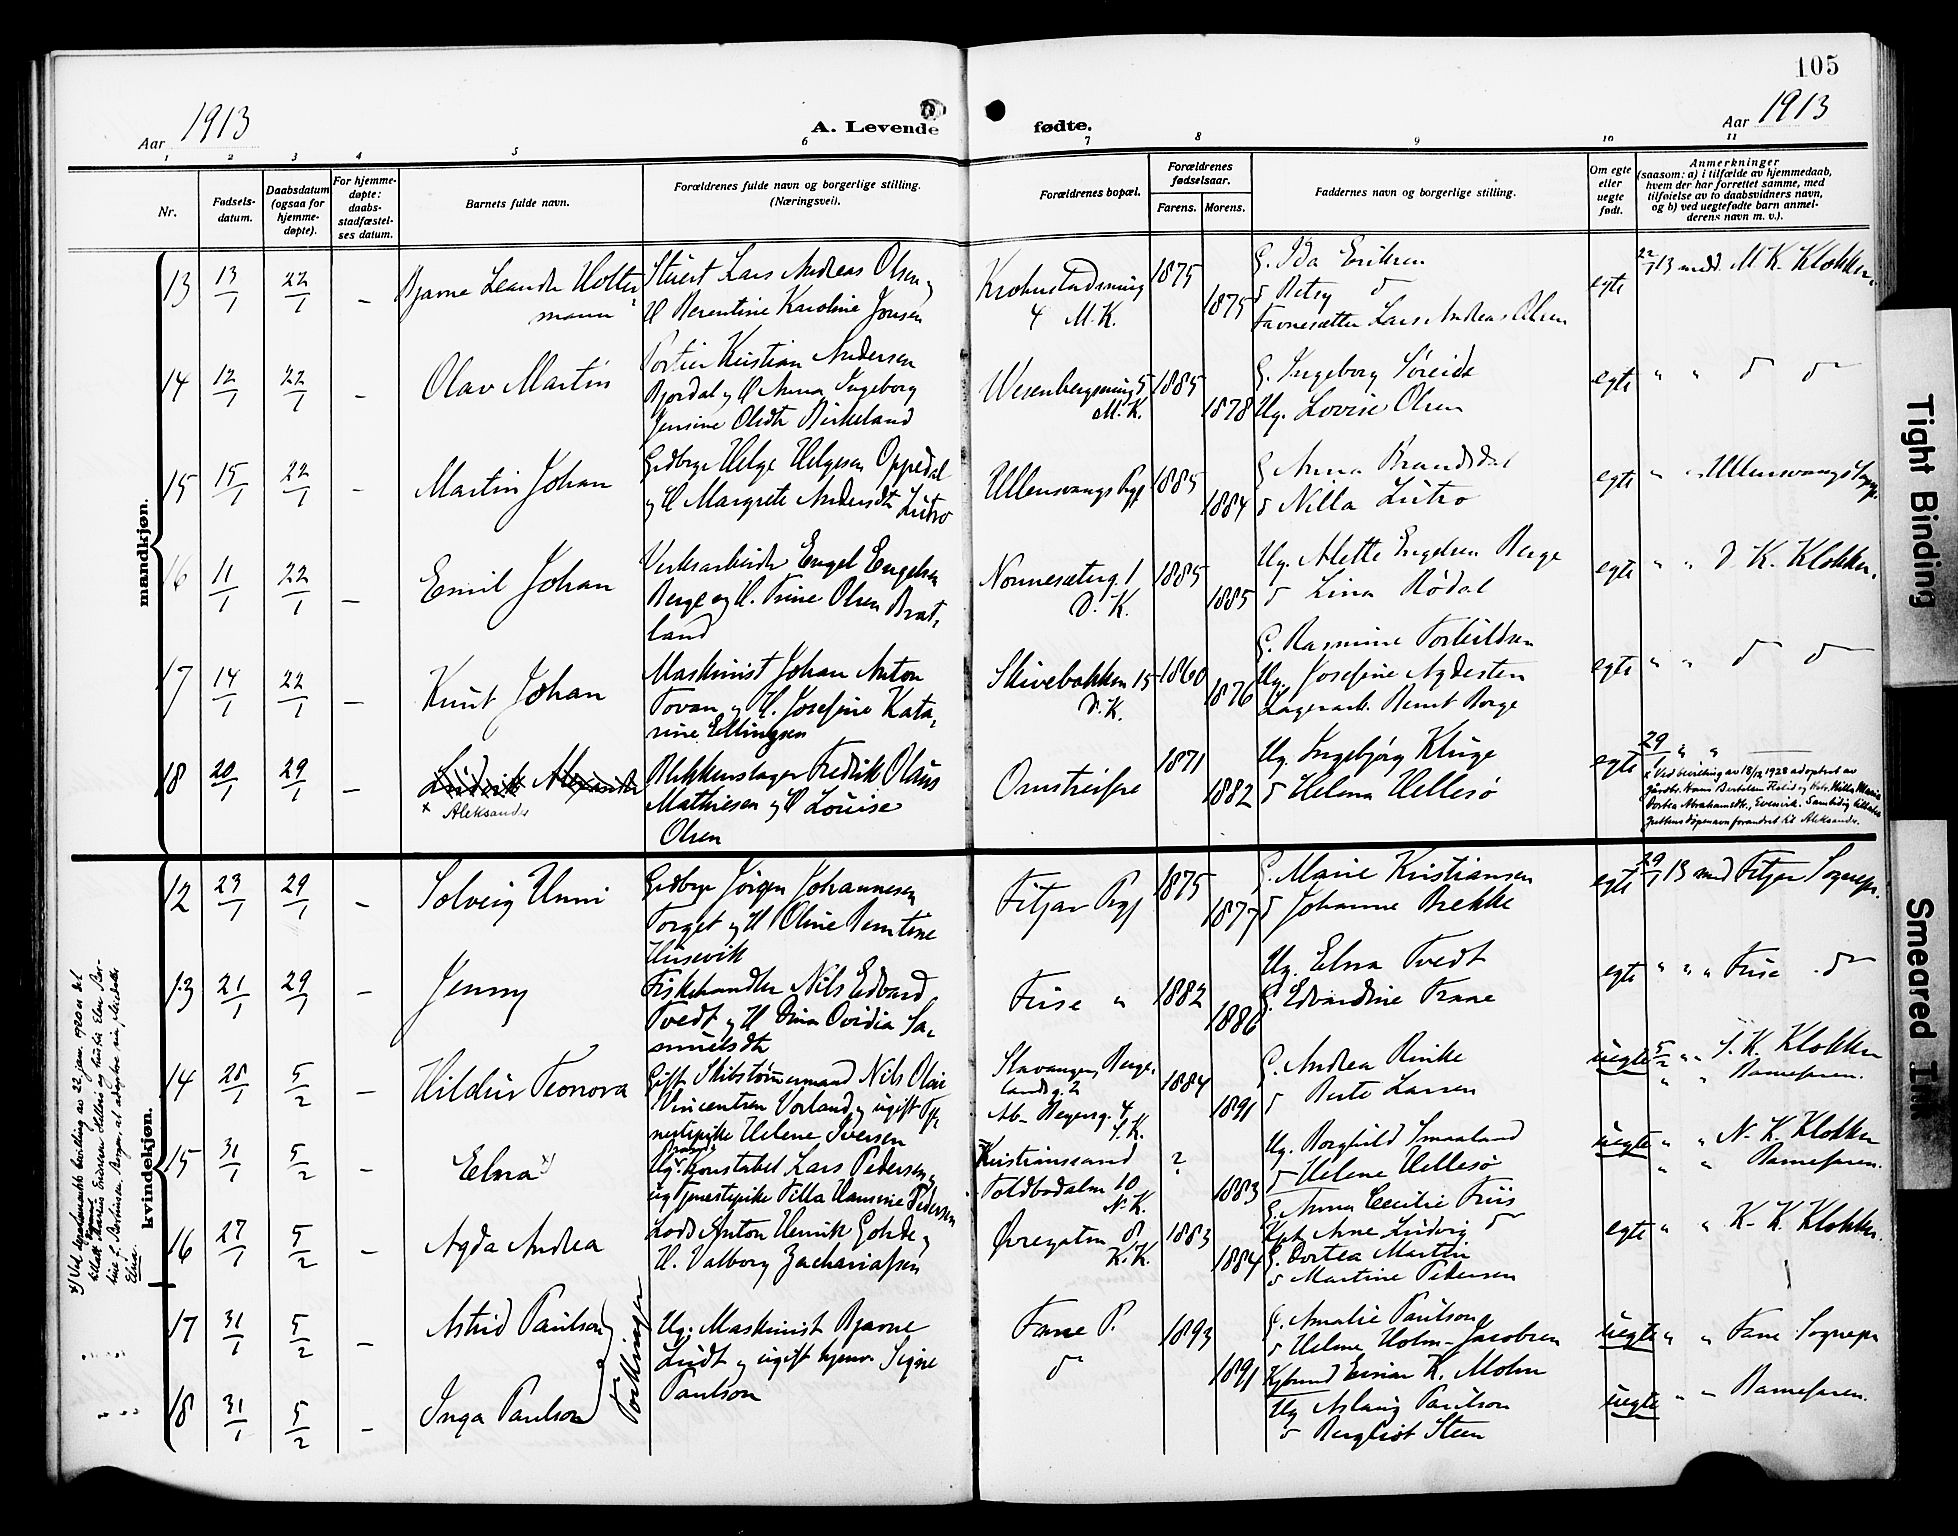 105
Aar 1913
A. Levende
fødte.
Aar 1913
1 2 3 4 5 6 7 8 9 10 11
Nr.
Fødsels-
datum.
Daabsdatum
(ogsaa for
hjemme-
døpte).
For hjemme-
døpte:
daabs-
stadfæstel-
ses datum.
Barnets fulde navn.
Forældrenes fulde navn og borgerlige stilling.
(Næringsvei).
Forældrenes bopæl.
Forældrenes
fødselsaar.
Farens. Morens.
Faddernes navn og borgerlige stilling.
Om egte
eller
uegte
født.
Anmerkninger
(saasom: a) i tilfælde av hjemmedaab,
hvem der har forrettet samme, med
tilføielse av to daabsvidners navn,
og b) ved uegtefødte barn anmel-
derens navn m. v.).
mandkjøn.
13 13/1 22/1 –
Bjarne Leander Holter
mann
Stuert Lars Andreas Olsen og
H Berentine Karoline Jonsen
4 M.K.
1875
1875
G. Ida Eriksen
d Betsy d
Lars Andreas Olsen
egte
22/1 13 med. M.K. Klokker
14 12/1 22/1 –
Olav Martin
Portier Kristian Andersen
Bjordal og H Anna Ingeborg
Jensine Olsdtr Birkeland
Wesenbergsmug 5
M.K.
1885
1878
G. Ingeborg Søreide
Ug. Lovise Olsen
egte
" " d d
15 15/1 22/1 –
Martin Johan
Grdbrgr Helge Helgesen Oppedal
og H Margrete Andersdtr Lutro
Ullensvangs Pgj
1885
1884
G Anna Brandsdal
d Nilla Lutro
egte
" " Ullensvangs Sognep.
16 11/1 22/1 –
Emil Johan
Verksarbeider Engel Engelsen
Berge og H. Trine Olsen Brat,
land
Nonneseterg. 1
D.K.
1885
1885
Ug. Alette Engelsen Berge
d Lina Rødal
egte
" " D.K. Klokker.
17 14/1 22/1 –
Knut Johan
Maskinist Johan Anton
Tovan og H. Josefine Kata,
rine Ellingsen
Skivebakken 15
D.K.
1860
1876
G. Rasmine Torkildsen
Ug. Josefine Agdesten
Lagerarb. Bernt Borge
egte
" " d d
18 20/1 29/1 –
x Aleksander
Blikkenslager Fredrik Olaus
Mathiesen og H Louise
Olsen
Omstreifere
1871
1882
Ug. Ingebjørg Kluge
d Helena Hellesø
egte
29/1 " "
x Ved bevilling av 18/12 1928 adoptert av
kvindekjøn.
12 23/1 29/1 –
Solveig Unni
Grdbrgr Jörgen Johannesen
Torget og H Oline Berntine
Husevik
Fitjar Pgj
1875
1877
G. Marie Kristiansen
d Johanne Brekke
egte
29/1 13 med Fitjar Sognepr.
13 21/1 29/1 –
Jenny
Fiskehandler Nils Edvard
Tvedt og H Dina Ovidia Sa-
muelsdtr
Fuse "
1882
1886
Ug. Elna Tvedt
G. Edvardine Trane
egte
" " " Fuse d
14 28/1 5/2 –
Hildur Teonora
Gift Skibstømmermand Nils Olai
Vincentsen Vorland og ugift Tje
nestepike Helene Iversen
Stavanger, Berge-
landsg. 2
Ab- Beyersg. 4
1884
1891
G. Andrea Rinke
d Berte Larsen
uegte
5/2 " " J.K. Klokker
" " Barnefaren.
15 31/1 5/2 –
Elna x)
Ug. Konstabel Lars Pedersen og
ug Tjenestepike Tilla Hansine Pedersen
Kristianssand
Toldbodalm 10
N.K.
?
1883
Ug. Borghild Smaaland
d Helene Hellesø
G. Anna Cecilie Friis
uegte
" " N.K. Klokker
" " Barnefaren.
16 27/1 5/2 –
Agda Andrea
Lods Anton Henrik Gohde og
H. Valborg Zachariassen
Øvregaten 8
K.K.
1883
1884
Kpt. Arne Ludvig d
G. Dortea Martin
d Martine Pedersen
egte
" " K.K. Klokker.
17 31/1 5/2 –
Astrid Paulson
Tvillinger
Ug. Maskinist Bjarne
Lindt og ugift hjemv. Signe
Paulson
Fane P.
d
1893
1891
G. Amalie Paulson
d Helene Holm-Jacobsen
Einar K. Mohn
uegte
" " Fane Sognepr
18 31/1 5/2 –
Inga Paulson
Ug Aslaug Paulson
d Bergliot Steen
uegte
" " Barnefaren.
x) Ved departementets bevilling av 22 jan. 1920 er det
Elna.
Tight Binding
Smeared Ink